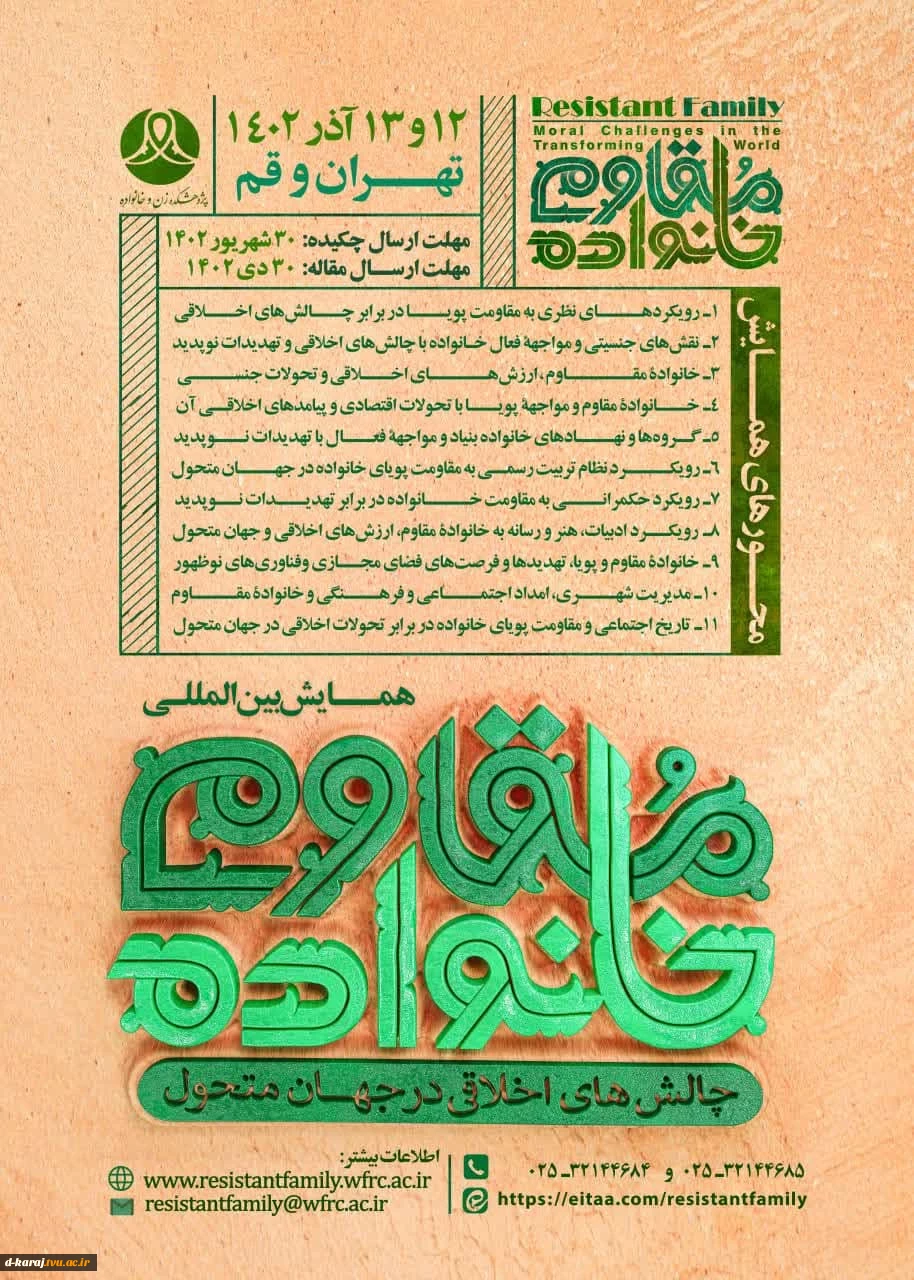 Resistant Family
Moral Challenges in the
Transforming World
خانواده مُقاوم
۱۲ و ۱۳ آذر ۱۴۰۲
تهران و قم
پژوهشکده زن و خانواده
مهلت ارسال چکیده: ۳۰ شهریور ۱۴۰۲
مهلت ارسال مقاله: ۳۰ دی ۱۴۰۲
محورهای همایش
۱ـ رویکردهای نظری به مقاومت پویا در برابر چالش‌های اخلاقی
۲ـ نقش‌های جنسیتی و مواجههٔ فعال خانواده با چالش‌های اخلاقی و تهدیدات نوپدید
۳ـ خانوادهٔ مقاوم، ارزش‌های اخلاقی و تحولات جنسی
۴ـ خانوادهٔ مقاوم و مواجههٔ پویا با تحولات اقتصادی و پیامدهای اخلاقی آن
۵ـ گروه‌ها و نهادهای خانواده بنیاد و مواجههٔ فعال با تهدیدات نوپدید
۶ـ رویکرد نظام تربیت رسمی به مقاومت پویای خانواده در جهان متحول
۷ـ رویکرد حکمرانی به مقاومت خانواده در برابر تهدیدات نوپدید
۸ـ رویکرد ادبیات، هنر و رسانه به خانوادهٔ مقاوم، ارزش‌های اخلاقی و جهان متحول
۹ـ خانوادهٔ مقاوم و پویا، تهدیدها و فرصت‌های فضای مجازی وفناوری‌های نوظهور
۱۰ـ مدیریت شهری، امداد اجتماعی و فرهنگی و خانوادهٔ مقاوم
۱۱ـ تاریخ اجتماعی و مقاومت پویای خانواده در برابر تحولات اخلاقی در جهان متحول
همایش بین‌المللی
خانواده مُقاوم
چالش های اخلاقی در جهان متحول
۰۲۵ـ۳۲۱۴۴۶۸۵ و ۰۲۵ـ۳۲۱۴۴۶۸۴
https://eitaa.com/resistantfamily
اطلاعات بیشتر:
www.resistantfamily.wfrc.ac.ir
resistantfamily@wfrc.ac.ir
d-karaj.tvu.ac.ir